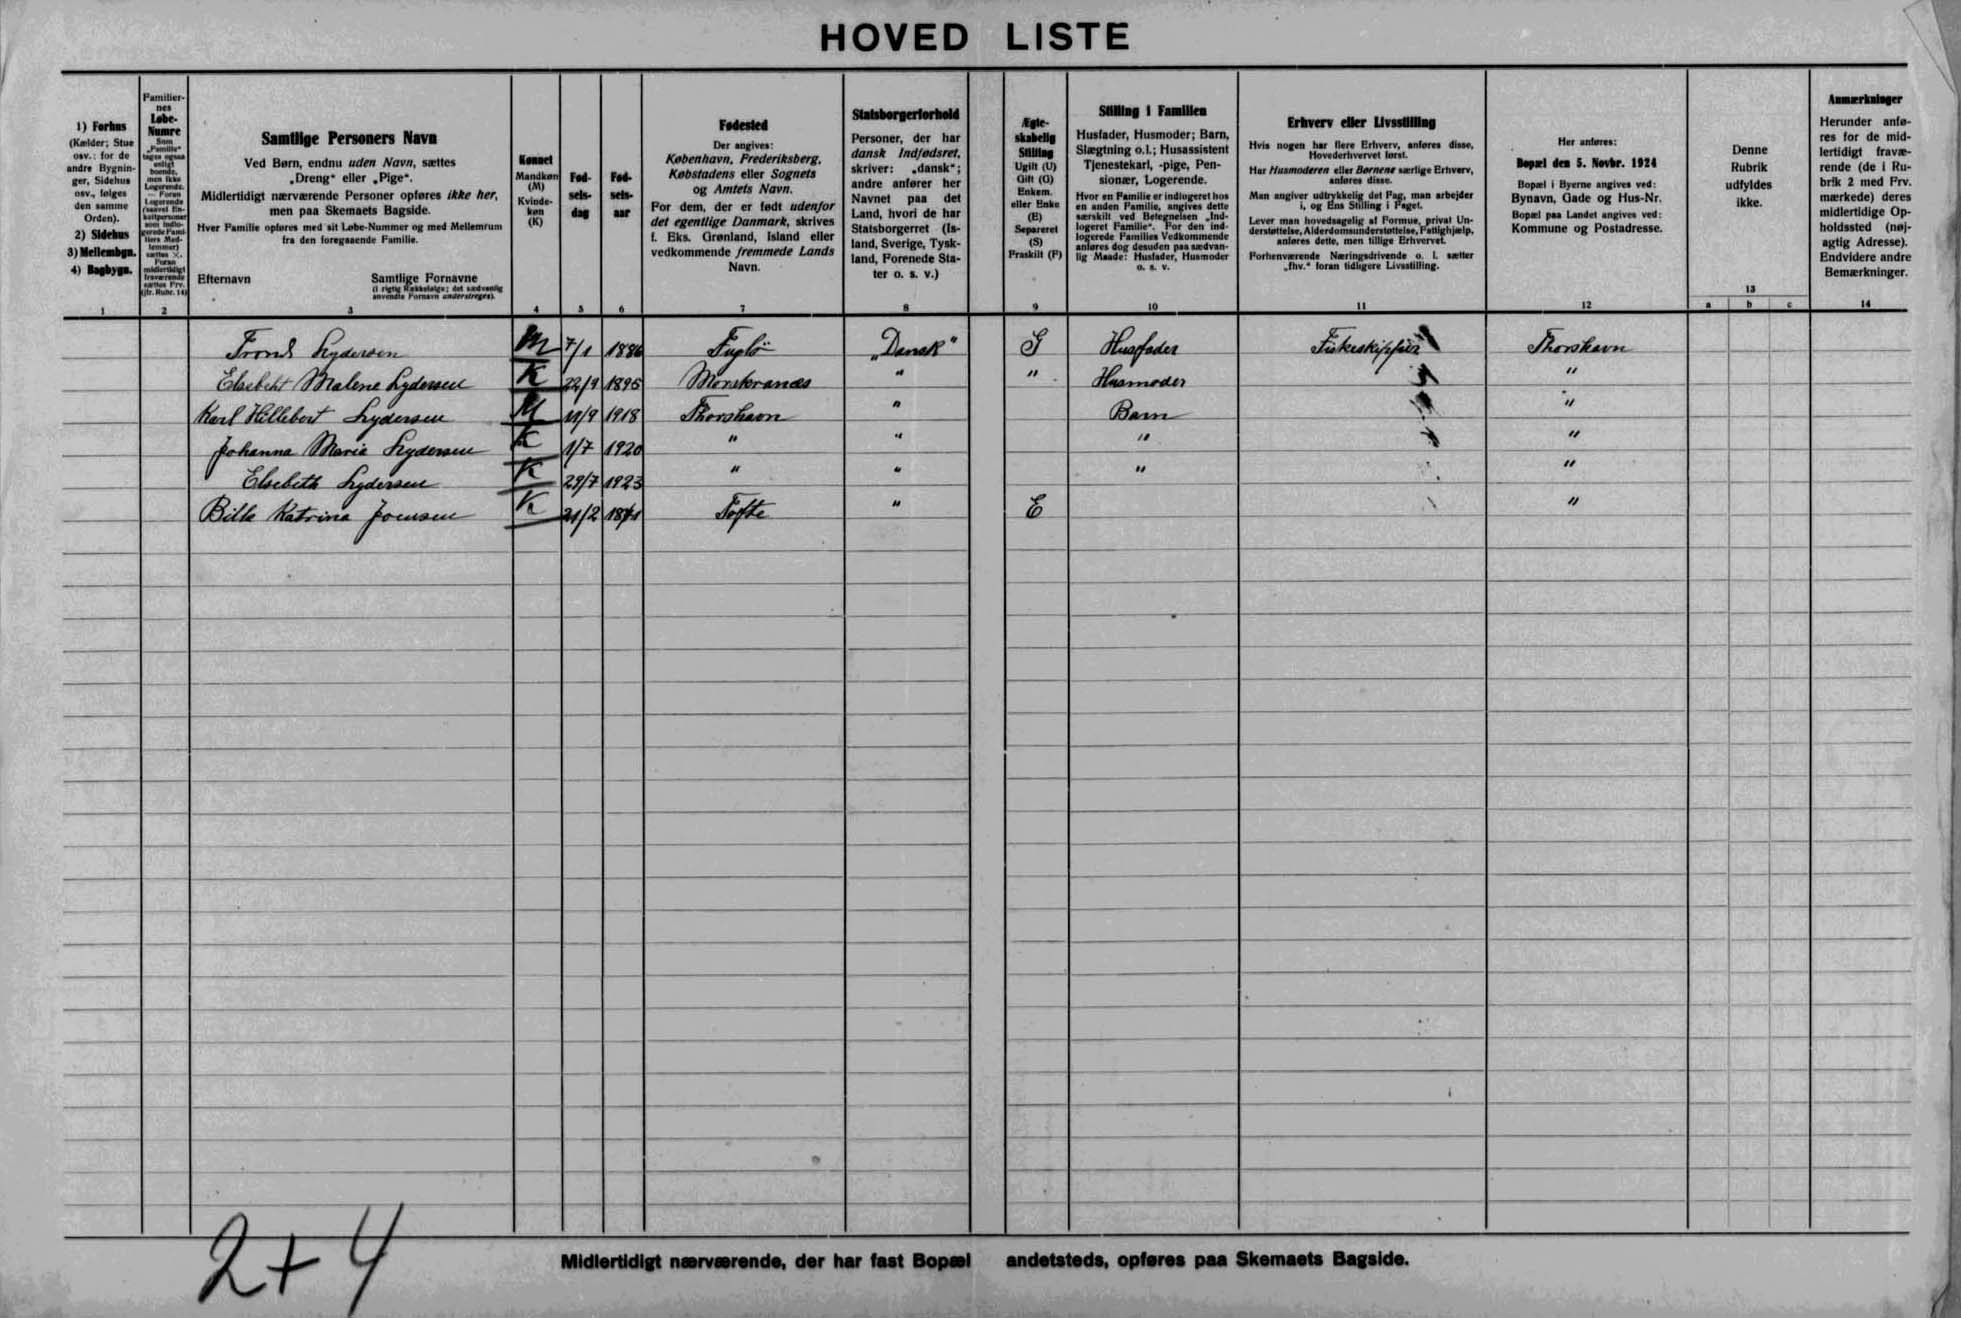 HOVED LISTE
1) Forhus
(Kælder; Stue
osv.: for de
andre Bygnin-
ger, Sidehus
osv., følges
den samme
Orden).
2) Sidehus
3) Mellembgn.
4) Bagbygn.
1
Familier-
nes
Løbe-
Numre
Som
„Familie“
tages ogsaa
enligt
boende,
men ikke
Logerende.
2
Samtlige Personers Navn
Ved Børn, endnu uden Navn, sættes
„Dreng“ eller „Pige“.
Midlertidigt nærværende Personer opføres ikke her,
men paa Skemaets Bagside.
Hver Familie opføres med sit Løbe-Nummer og med Mellemrum
fra den foregaaende Familie.
Efternavn Samtlige Fornavne
(i rigtig Rækkefølge; det sædvanlig
anvendte Fornavn understreges).
3
Kønnet
Mandkøn
(M)
Kvinde-
køn
(K)
4
Fød-
sels-
dag
5
Fød-
sels-
aar
6
Fødested
Der angives:
København, Frederiksberg,
Købstadens eller Sognets
og Amtets Navn.
For dem, der er født udenfor
det egentlige Danmark, skrives
f. Eks. Grønland, Island eller
vedkommende fremmede Lands
Navn.
7
Statsborgerforhold
Personer, der har
dansk Indfødsret,
skriver: „dansk“;
andre anfører her
Navnet paa det
Land, hvori de har
Statsborgerret (Is-
land, Sverige, Tysk-
land, Forenede Sta-
ter o. s. v.)
8
Ægte-
skabelig
Stilling
Ugift (U)
Gift (G)
Enkem.
eller Enke
(E)
Separeret
(S)
Fraskilt (F)
9
Stilling i Familien
Husfader, Husmoder; Barn,
Slægtning o.l.; Husassistent
Tjenestekarl, -pige, Pen-
sionær, Logerende.
Hvor en Familie er indlogeret hos
en anden Familie, angives dette
særskilt ved Betegnelsen „Ind-
logeret Familie“. For den ind-
logerede Families Vedkommende
anføres dog desuden paa sædvan-
lig Maade: Husfader, Husmoder
o. s. v.
10
Erhverv eller Livsstilling
Hvis nogen har flere Erhverv, anføres disse,
Hovederhvervet først.
Har Husmoderen eller Børnene særlige Erhverv,
anføres disse.
Man angiver udtrykkelig det Fag, man arbejder
i, og Ens Stilling i Faget.
Lever man hovedsagelig af Formue, privat Un-
derstøttelse, Alderdomsunderstøttelse, Fattighjælp,
anføres dette, men tillige Erhvervet.
Forhenværende Næringsdrivende o. l. sætter
„fhv.“ foran tidligere Livsstilling.
11
Her anføres:
Bopæl den 5. Novbr. 1924
Bopæl i Byerne angives ved:
Bynavn, Gade og Hus-Nr.
Bopæl paa Landet angives ved:
Kommune og Postadresse.
12
Denne
Rubrik
udfyldes
ikke.
13
a b c
Anmærkninger
Herunder anfø-
res for de mid-
lertidigt fravæ-
rende (de i Ru-
brik 2 med Frv.
mærkede) deres
midlertidige Op-
holdssted (nøj-
agtig Adresse).
Endvidere andre
Bemærkninger.
14
Trond Lydersen M 7/1 1886 Fuglö „Dansk“ G Husfader Fiskeskipper Thorshavn
Elsebeht Malene Lydersen K 22/9 1895 Morskranæs " " Husmoder "
Karl Hillebert Lydersen M 11/9 1918 Thorshavn " Barn "
Johanna Marie Lydersen K 1/7 1920 " " " "
Elsebeth Lydersen K 29/7 1923 " " " "
Billa Katrina Joensen K 21/2 Tofte " E "
Midlertidigt nærværende, der har fast Bopæl andetsteds, opføres paa Skemaets Bagside.
2+4